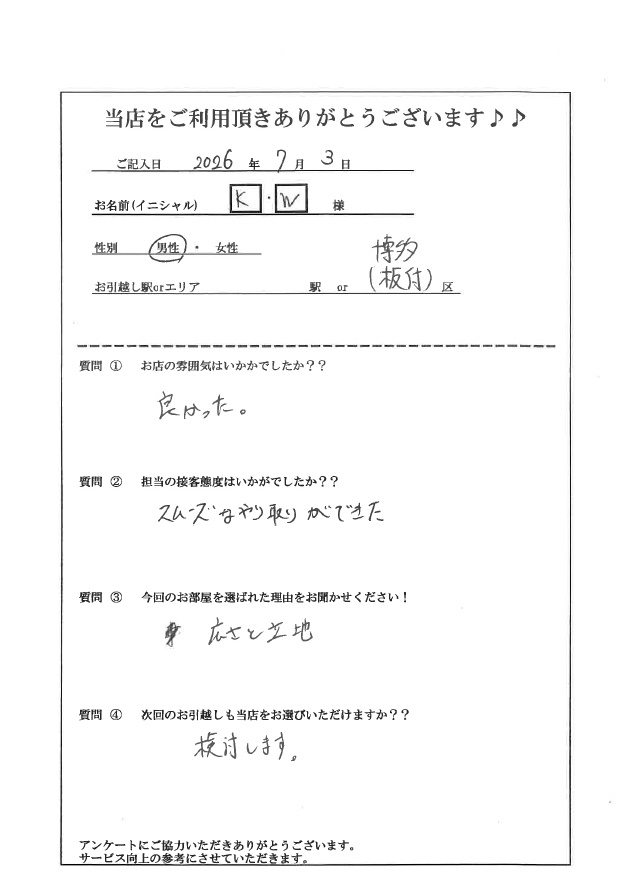 当店をご利用頂きありがとうございます♪♪
ご記入日 2026 年 7 月 3 日
お名前(イニシャル) K ・ W 様
性別 男性 ・ 女性
お引越し駅orエリア 駅 or 博多(板付) 区
質問 ① お店の雰囲気はいかかでしたか??
良かった。
質問 ② 担当の接客態度はいかがでしたか??
スムーズなやり取りができた
質問 ③ 今回のお部屋を選ばれた理由をお聞かせください!
広さと立地
質問 ④ 次回のお引越しも当店をお選びいただけますか??
検討します。
アンケートにご協力いただきありがとうございます。
サービス向上の参考にさせていただきます。